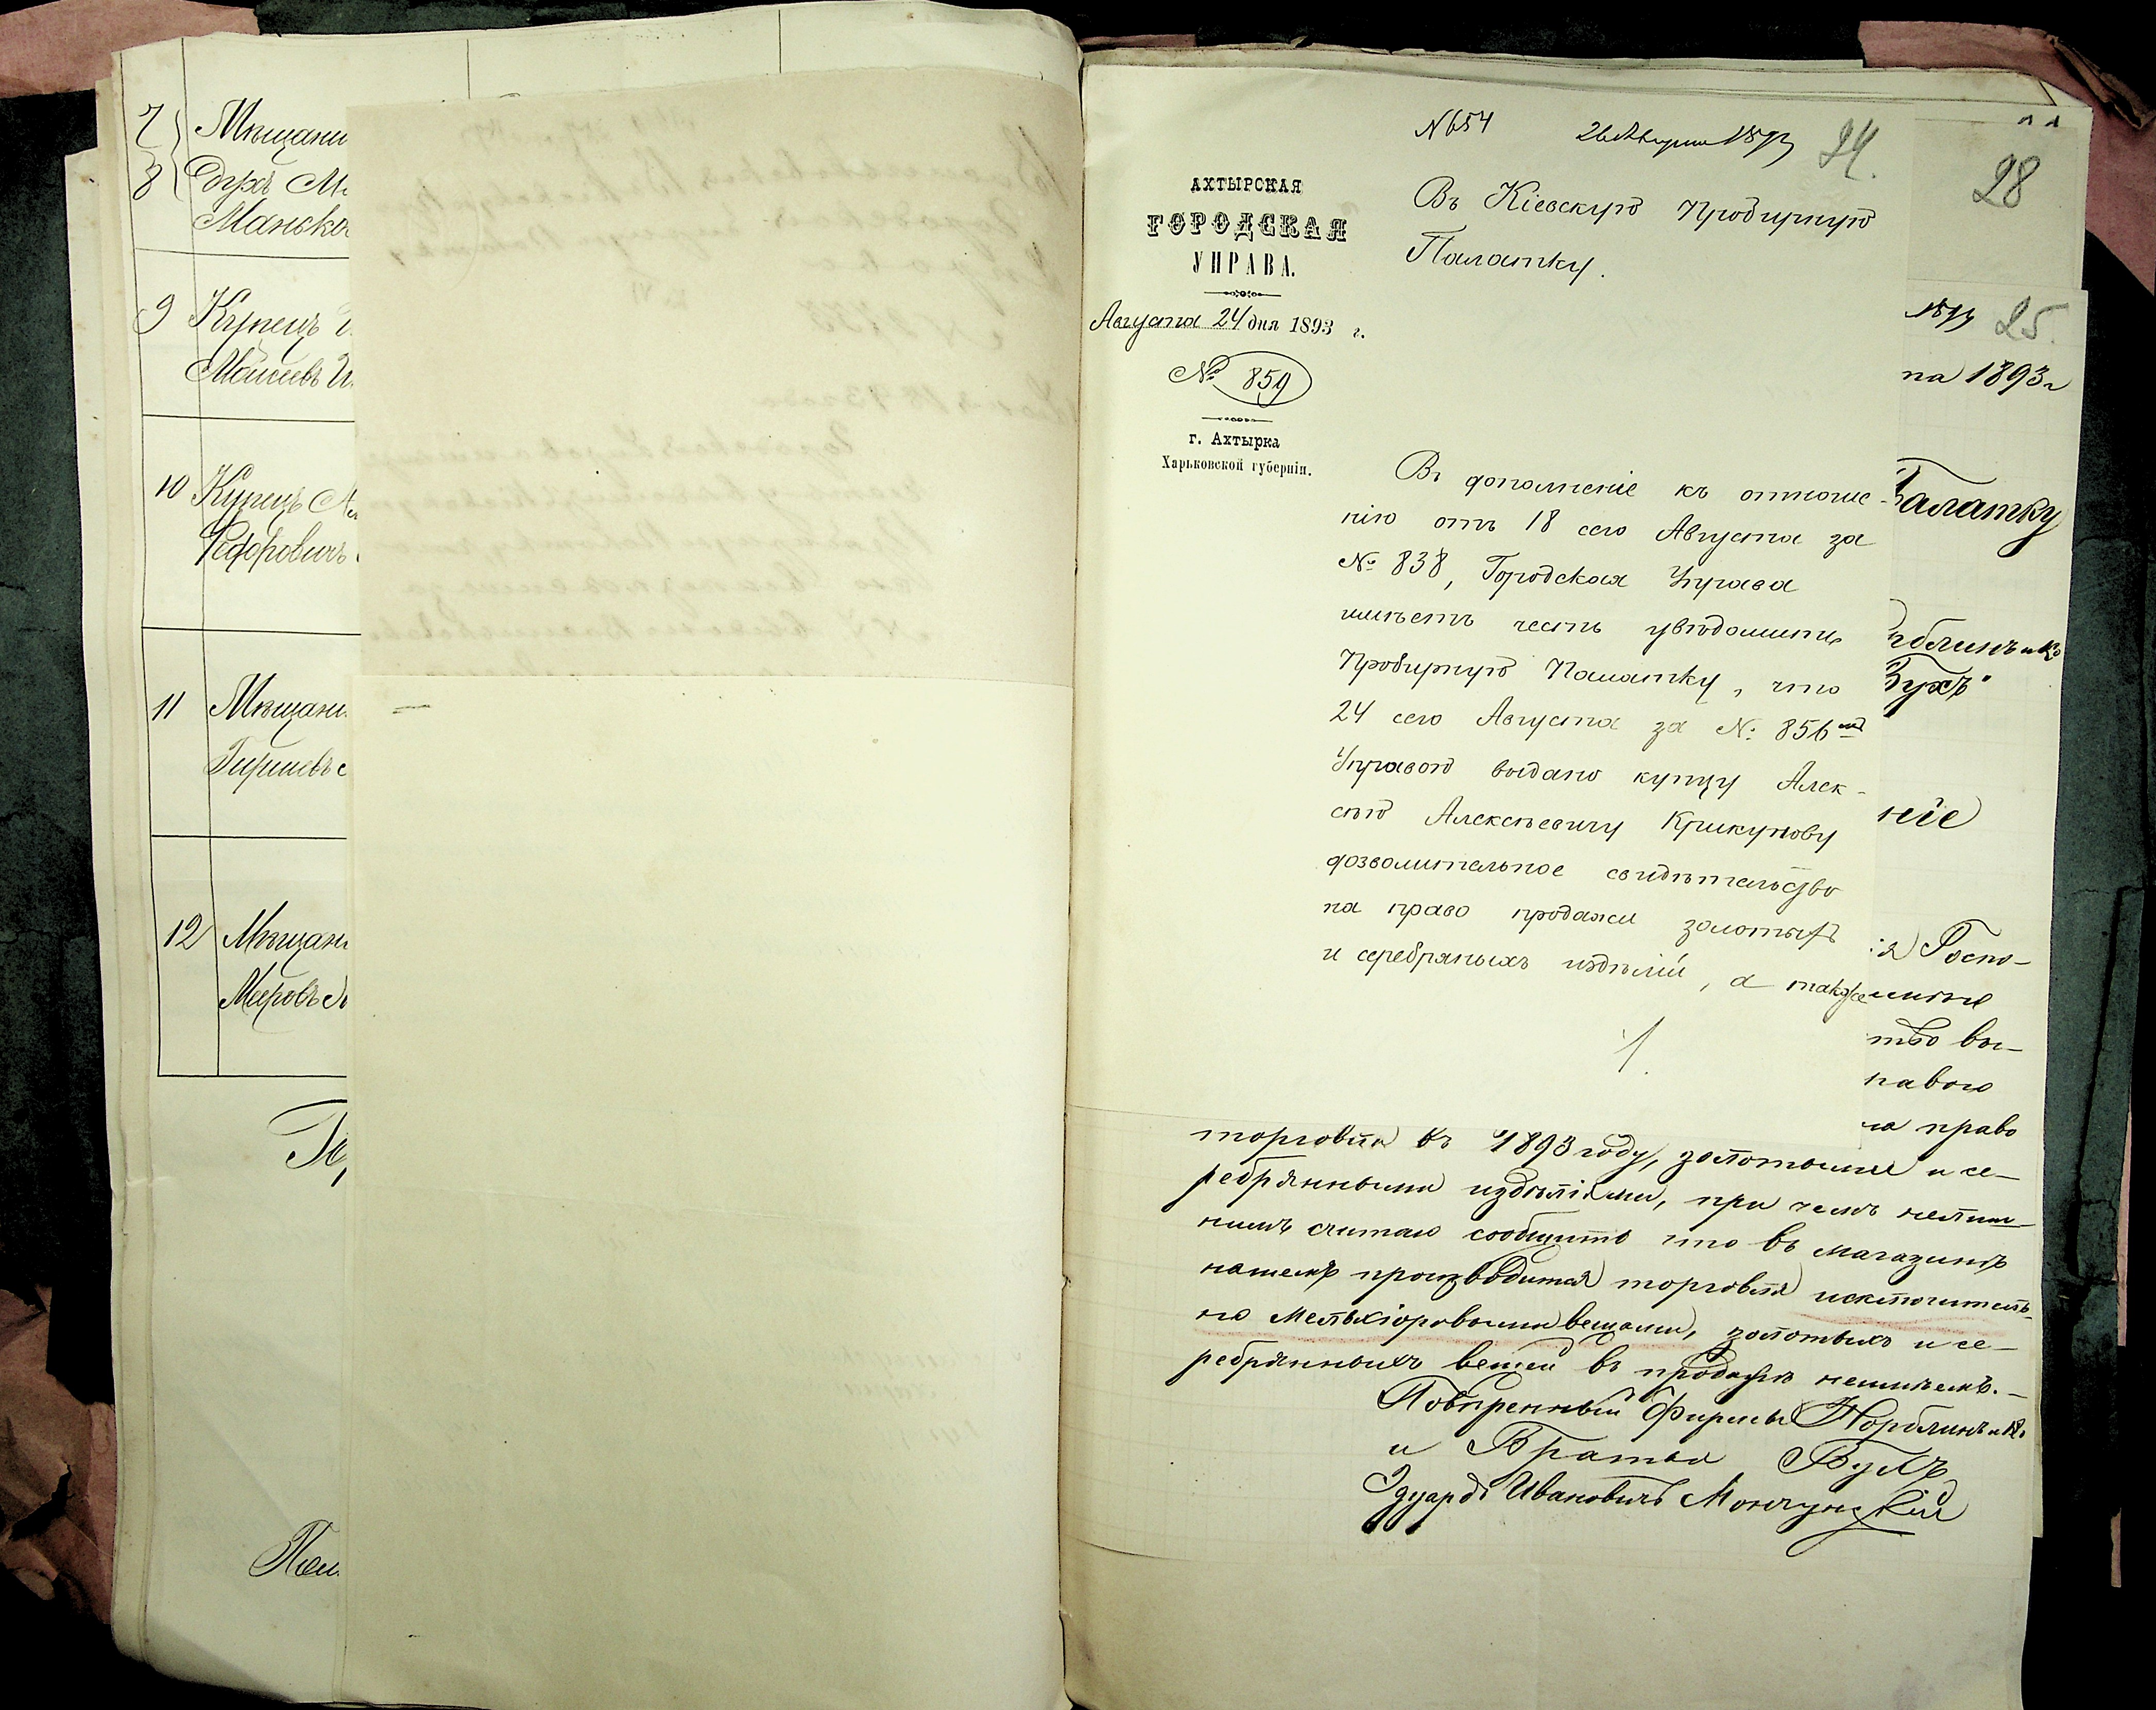 7 Мѣщани
8
Манько
9 Купецъ
10 Купецъ
Федоровичъ
11 Мѣщани
Гиршевъ
12 Мѣщани
Мееровъ
№ 654 26 Августа 1893 24.
28
АХТЫРСКАЯ
ГОРОДСКАЯ
УПРАВА.
Августа 24 дня 1893 г.
№ 859
г. Ахтырка
Харьковской губерніи.
Въ Кіевскую Пробирную
Палатку.
Въ дополненіе къ отноше-
нію отъ 18 сего Августа за
№ 838, Городская Управа
имѣетъ честь увѣдомить
Пробирную Палатку, что
24 сего Августа за № 856мъ
Управою выдано купцу Алек-
сѣю Алексѣевичу Крикунову
дозволительное свидѣтельство
на право продажи золотыхъ
и серебряныхъ издѣлій, а также
1893 25.
на 1893 г
Палатку
рблинъ и Ко
Бухъ"
ніе
ія Госпо-
тво вы-
равою
на право
торговли въ 1893 году, золотыми и се-
ребрянными издѣліями, при чемъ нелиш-
нимъ считаю сообщить что въ магазинѣ
нашемъ производится торговля исключитель-
но Мельхіоровыми вещами, золотыхъ и се-
ребрянныхъ вещей въ продажѣ неимѣемъ.-
Повѣренный Фирмы Норблинъ и Ко
и Братья Бухъ
Эдуардъ Ивановичъ Мончунскій